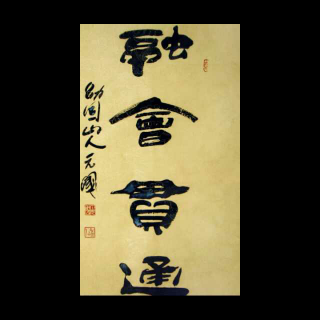 融會貫通
幼圃山人元國